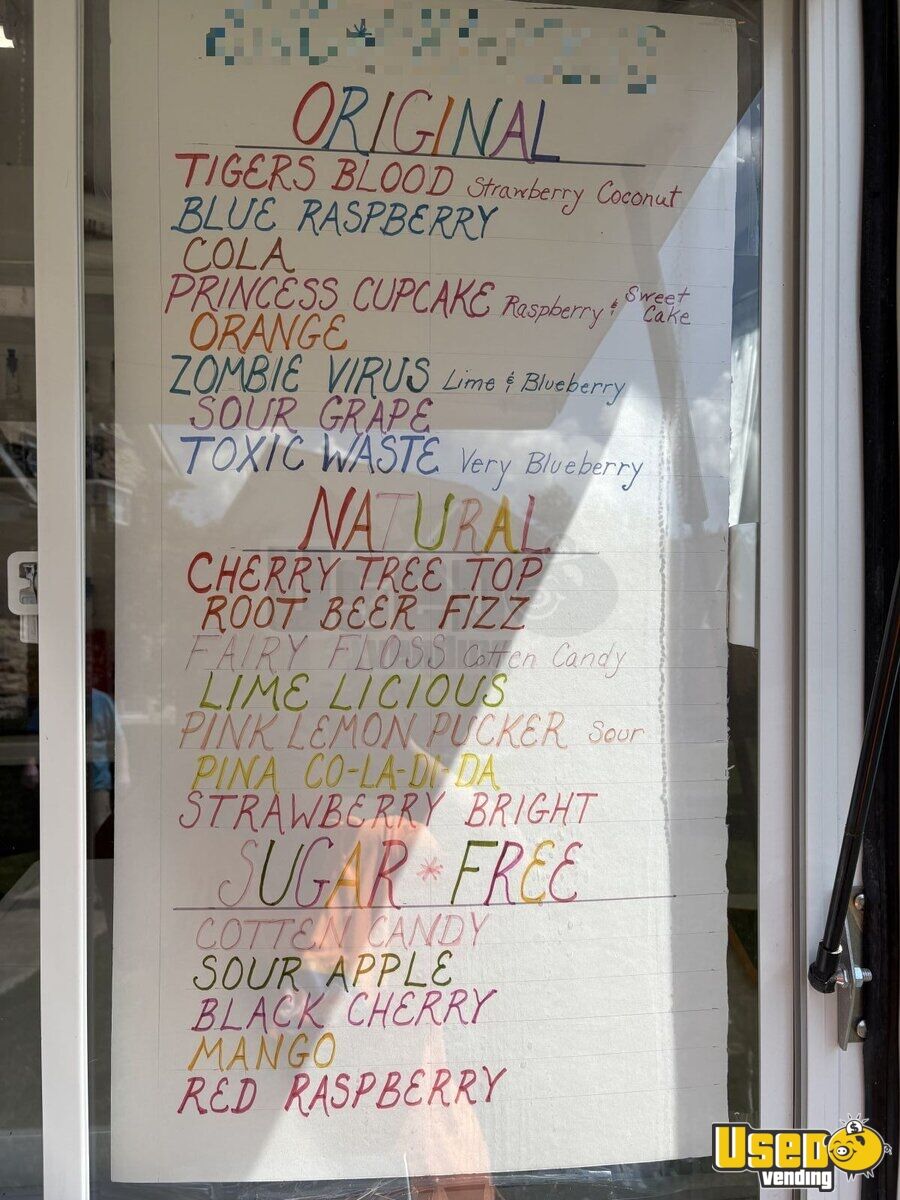 ORIGINAL
TIGERS BLOOD Strawberry Coconut
BLUE RASPBERRY
COLA
PRINCESS CUPCAKE Raspberry & Sweet Cake
ORANGE
ZOMBIE VIRUS Lime & Blueberry
SOUR GRAPE
TOXIC WASTE Very Blueberry
NATURAL
CHERRY TREE TOP
ROOT BEER FIZZ
FAIRY FLOSS Cotten Candy
LIME LICIOUS
PINK LEMON PUCKER Sour
PINA CO-LA-DI-DA
STRAWBERRY BRIGHT
SUGAR * FREE
COTTEN CANDY
SOUR APPLE
BLACK CHERRY
MANGO
RED RASPBERRY
USED vending